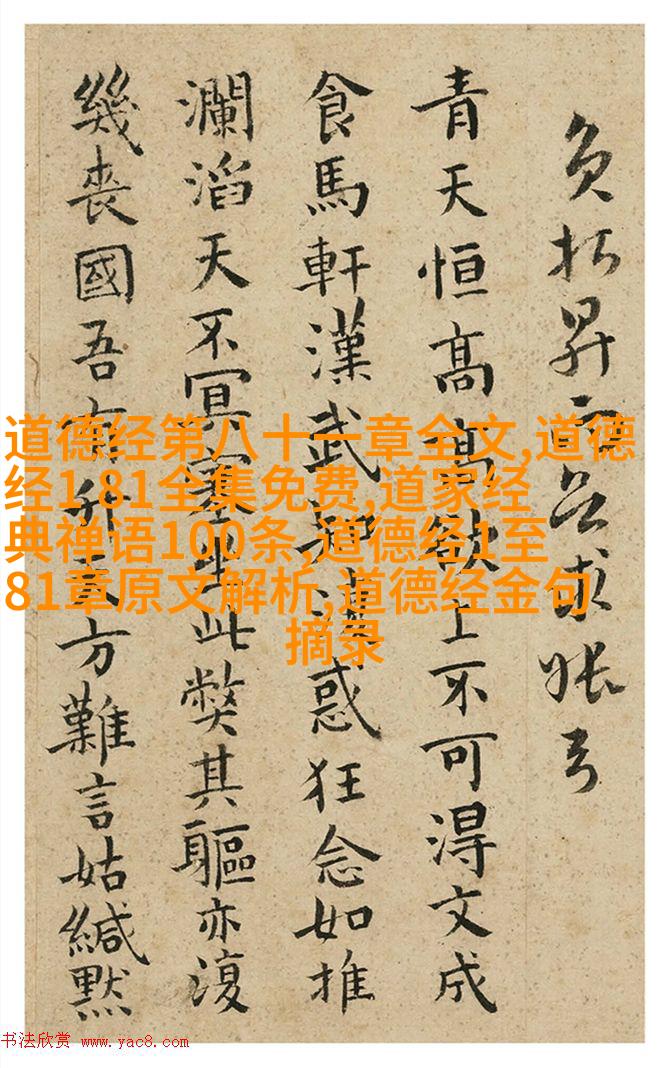 負昇求
青天恒高高欲上不可得文成
食馬軒漢武惑狂念如推
瀾滔天不冥塞此弊其軀亦復
幾喪國吾有升天方難言姑緘默
道德经第八十一章全文,道德
经1-81全集免费,道家经
典禅语100条,道德经1至
81章原文解析,道德经金句
摘录
书法欣赏 www.yac8.com